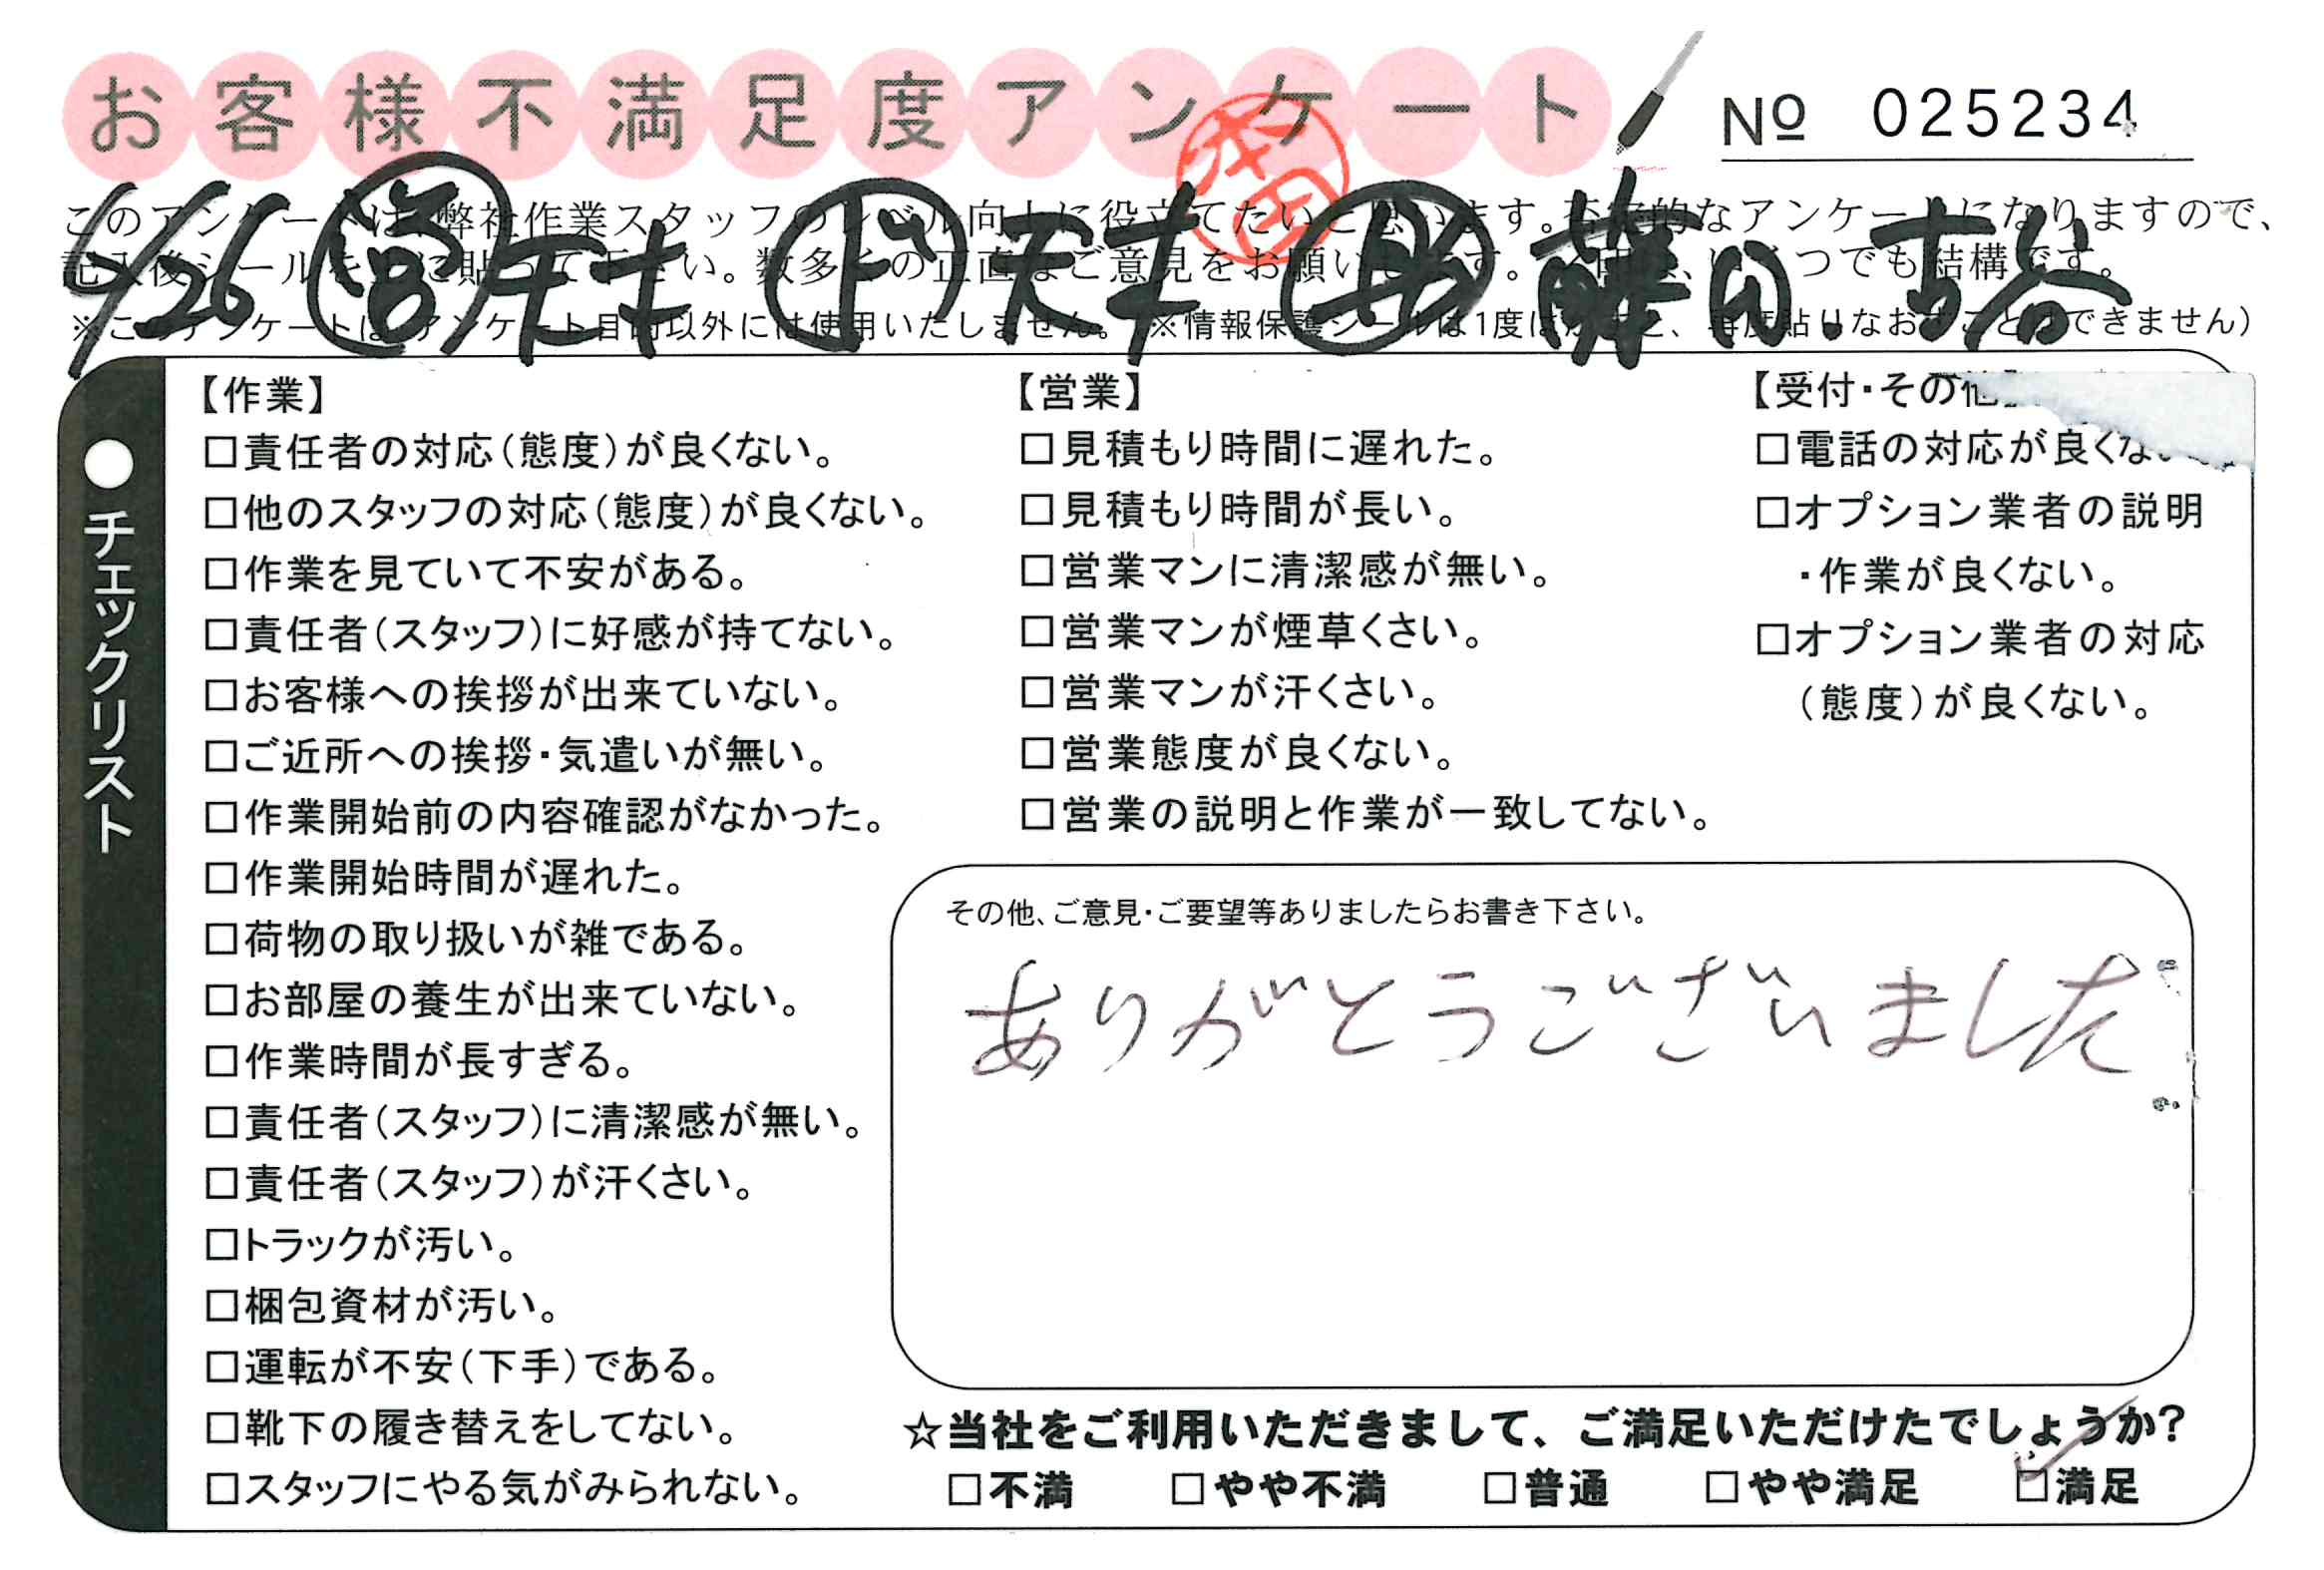 お客様不満足度アンケート
No 025234
このアンケートは、弊社作業スタッフのレベル向上に役立てたいと思います。否定的なアンケートになりますので、
記入後シールを上に貼って下さい。数多くの正直なご意見をお願いします。
つでも結構です。
※このアンケートは、アンケート目的以外には使用いたしません。(※情報保護シールは1度はがすと、再度貼りなおすことはできません)
6/26 営 天本 ド 天本 助 藤田.古谷
本田
●チェックリスト
【作業】
□責任者の対応(態度)が良くない。
□他のスタッフの対応(態度)が良くない。
□作業を見ていて不安がある。
□責任者(スタッフ)に好感が持てない。
□お客様への挨拶が出来ていない。
□ご近所への挨拶・気遣いが無い。
□作業開始前の内容確認がなかった。
□作業開始時間が遅れた。
□荷物の取り扱いが雑である。
□お部屋の養生が出来ていない。
□作業時間が長すぎる。
□責任者(スタッフ)に清潔感が無い。
□責任者(スタッフ)が汗くさい。
□トラックが汚い。
□梱包資材が汚い。
□運転が不安(下手)である。
□靴下の履き替えをしてない。
□スタッフにやる気がみられない。
【営業】
□見積もり時間に遅れた。
□見積もり時間が長い。
□営業マンに清潔感が無い。
□営業マンが煙草くさい。
□営業マンが汗くさい。
□営業態度が良くない。
□営業の説明と作業が一致してない。
【受付・その他】
□電話の対応が良くない
□オプション業者の説明
・作業が良くない。
□オプション業者の対応
(態度)が良くない。
その他、ご意見・ご要望等ありましたらお書き下さい。
ありがとうございました
☆当社をご利用いただきまして、ご満足いただけたでしょうか?
□不満 □やや不満 □普通 □やや満足 ☑満足